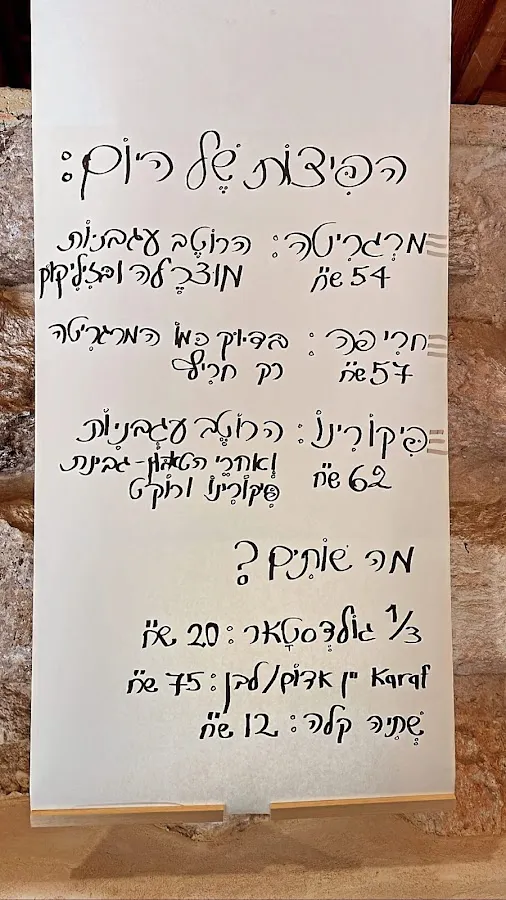 הפִּיצוֹת שֶׁל היוֹם:
מרְגרִיטה: הרוֹטֶב עגבניּוֹת
54 ש״ח מוצרֶלה ובזִילִיקוֹם
חרִיפה: בדיוּק כּמוֹ המרגרִיטה
57 ש״ח רק חרִיף
פִּיקוֹרִינוֹ: הרוֹטֶב עגבניּוֹת
62 ש״ח ואחרֵי הטאבּוּן-גבינת
פִּיקוֹרִינוֹ ורוֹקֶט
מה שׁוֹתִים?
1/3 גוֹלדְסטָאר: 20 ש״ח
Karaf יין אדוֹם/לבן: 75 ש״ח
שְׁתִיה קלה: 12 ש״ח